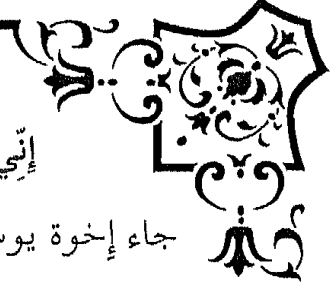 إِنِّي
جاء إخوة يوس